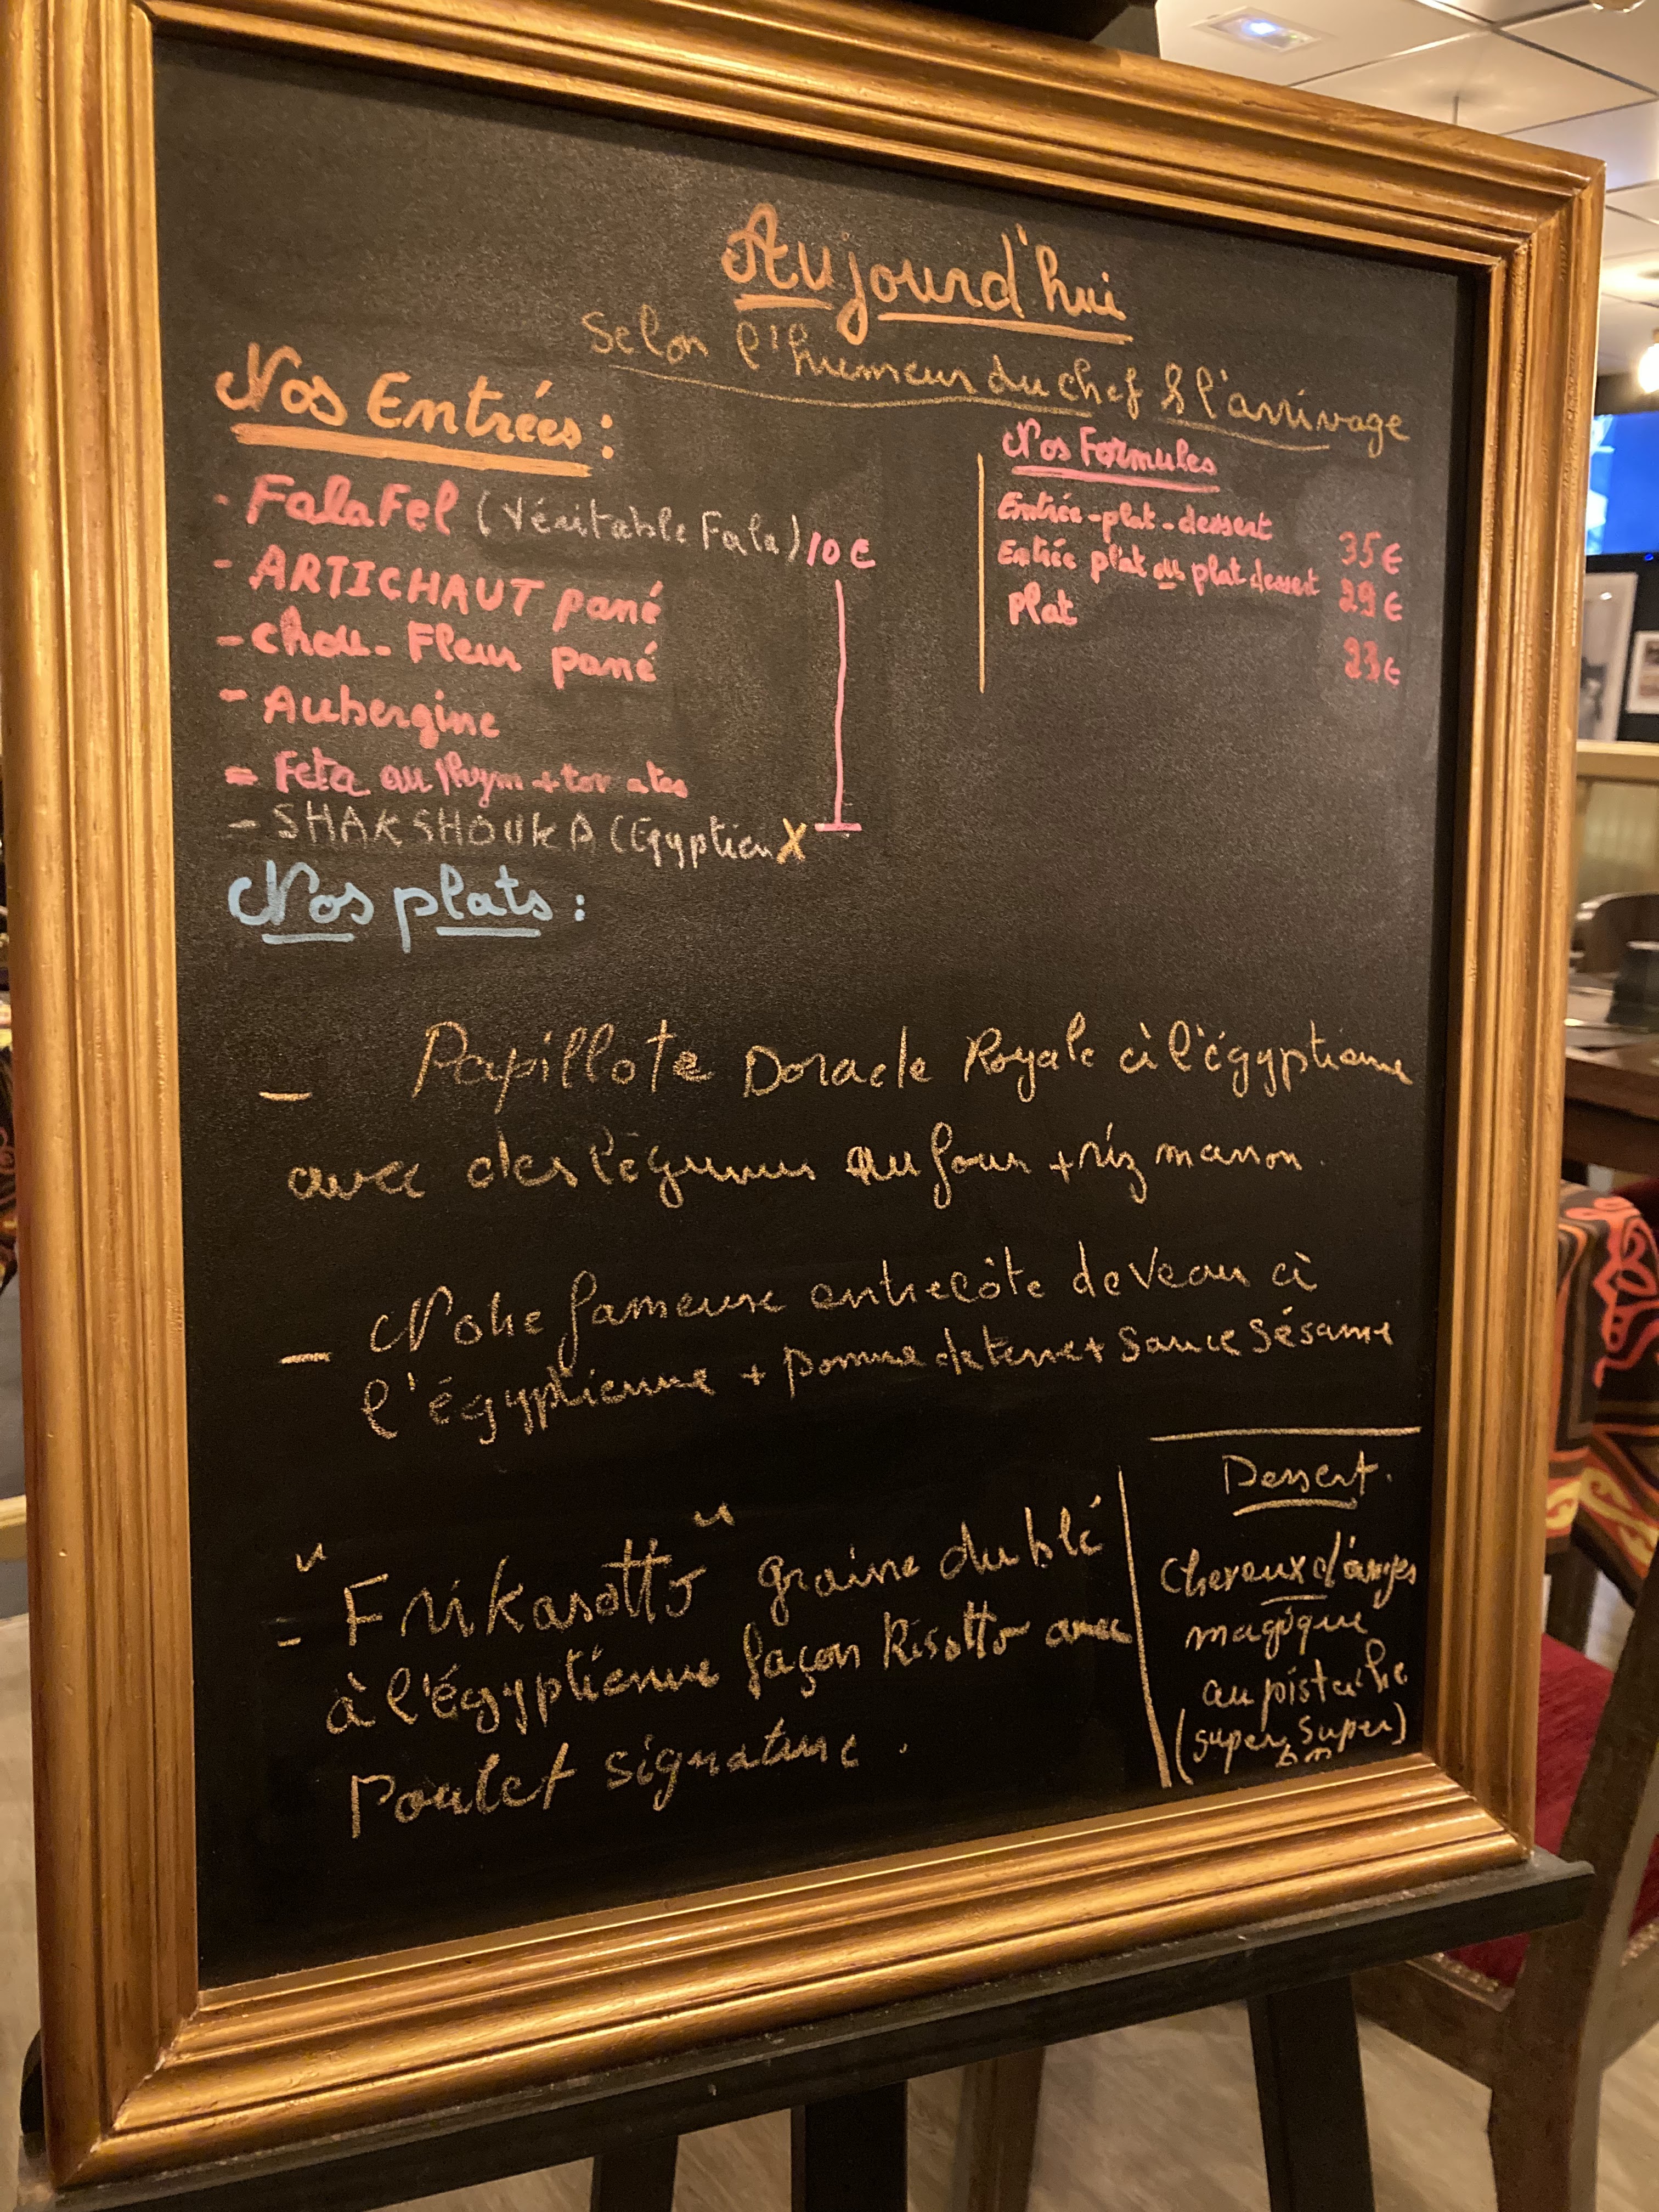 Aujourd'hui
Selon l'humeur du chef & l'arrivage
Nos Entrées :
- FalaFel (Véritable Fala) 10€
- ARTICHAUT pané
- chou-Fleur pané
- Aubergine
- Feta au thym + tom ates
- SHAKSHOUKA (Egyptien X
Nos Formules
Entrée-plat-dessert 35€
Entrée plat ou plat dessert 29€
Plat 23€
Nos plats :
- Papillote Dorade Royale à l'égyptienne
avec des légumes au four + riz marron.
- Notre fameuse entrecôte de Veau à
l'égyptienne + pomme de terre + Sauce Sésame
- "Frikasotto" graine du blé
à l'égyptienne façon Risotto avec
Poulet signature.
Dessert.
cheveux d'anges
magique
au pistache
(super, super)
bon